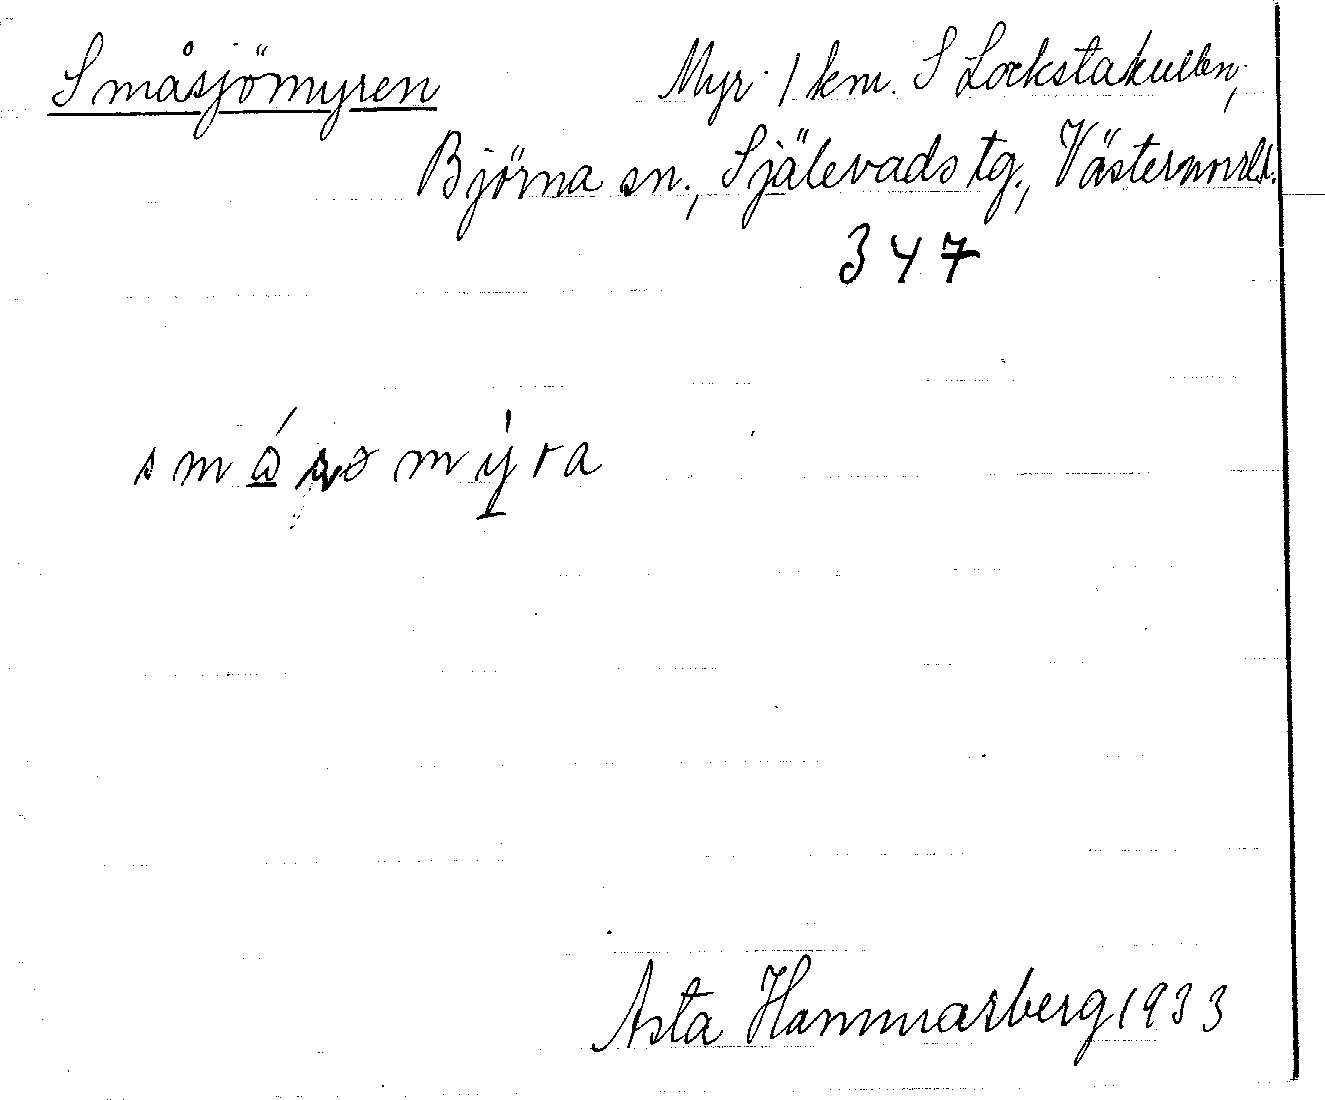 Småsjömyren Myr 1 km. S Lockstakullen,
Björna sn., Själevads tg., Västernorrl.
347
Asta Hammarberg 1933